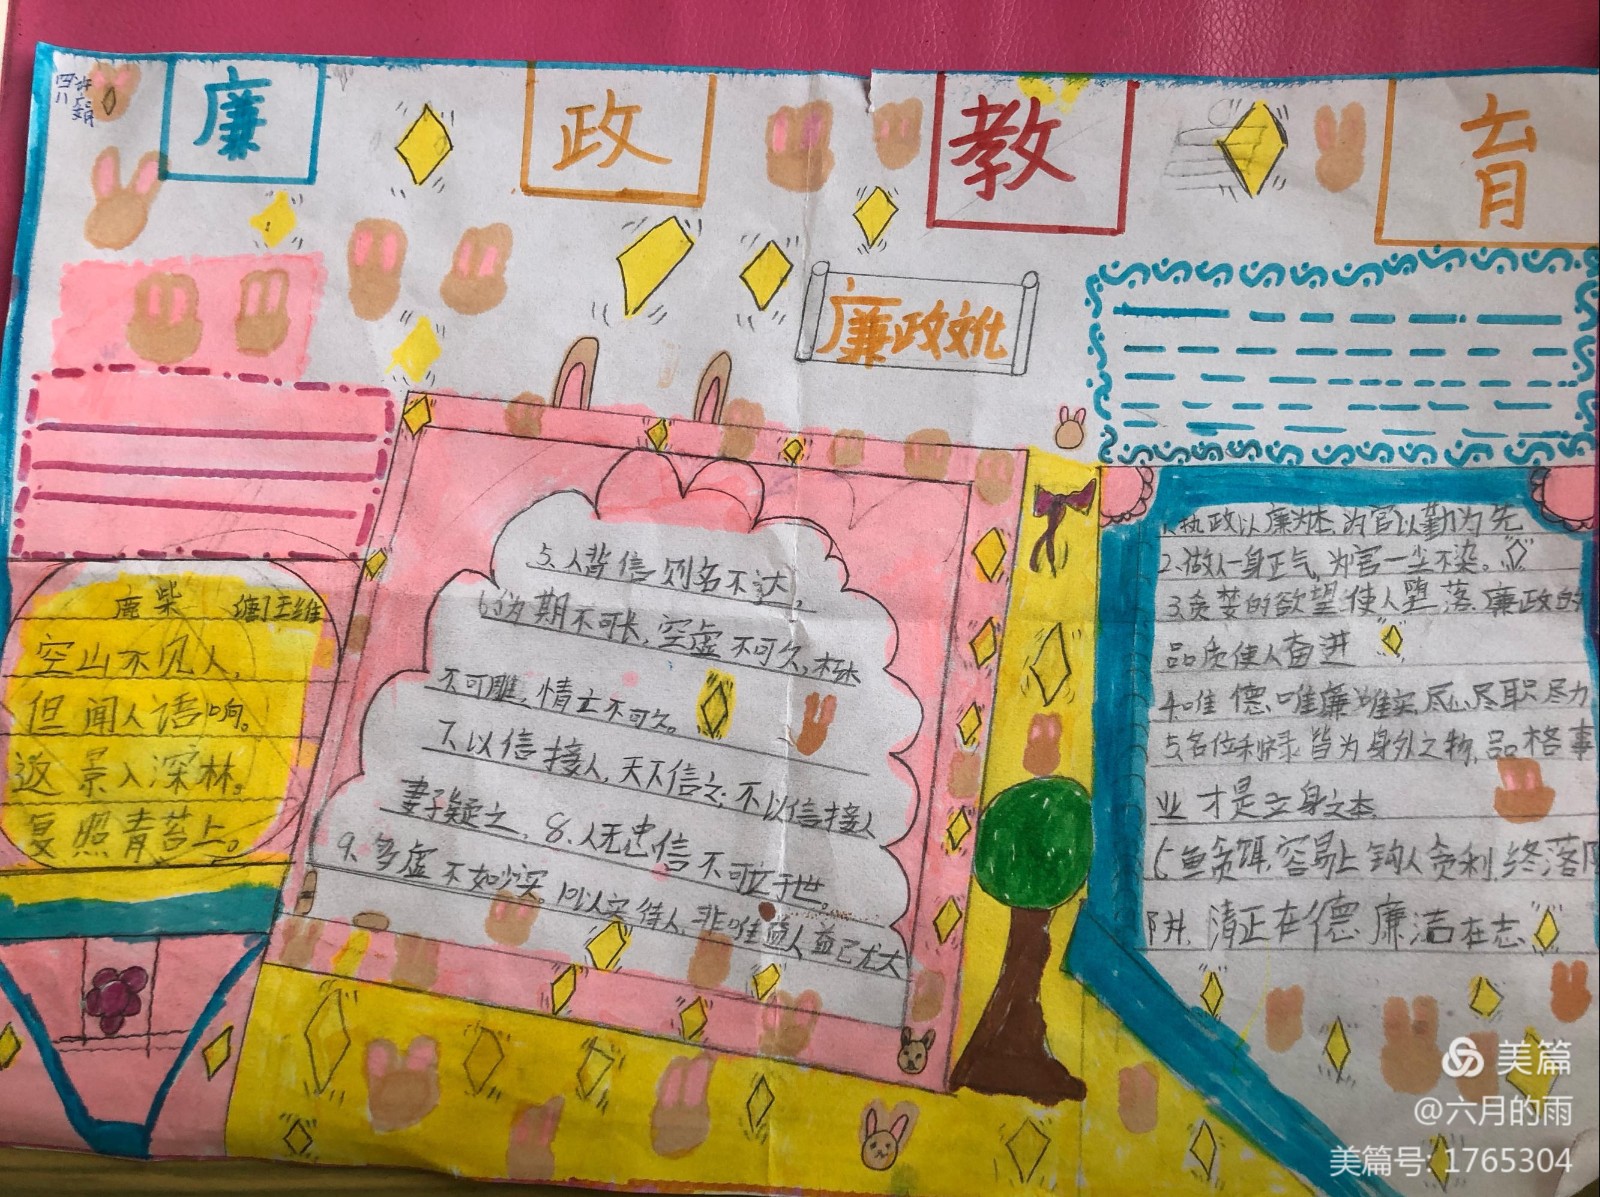 四八
廉 政 教 育
廉政文化
鹿柴 唐 王维
空山不见人,
但闻人语响。
返景入深林。
复照青苔上。
5、人背信则名不达,
6、伪期不可长,空虚不可久,朽木
不可雕,情亡不可久。
7、以信接人,天下信之;不以信接人
妻子疑之。8、人无忠信不可立于世。
9、多虚不如少实。10以实待人,非唯益人益己尤大
1、执政以廉为本,为官以勤为先
2、做人一身正气,为官一尘不染。
3、贪婪的欲望使人堕落 廉政的
品质使人奋进
4、唯德、唯廉唯实、尽心尽职尽力
5、名位利禄皆为身外之物,品格事
业才是立身之本
6、鱼贪饵,容易上钩人贪利,终落陷
阱、清正在德 廉洁在志
美篇
@六月的雨
美篇号: 1765304